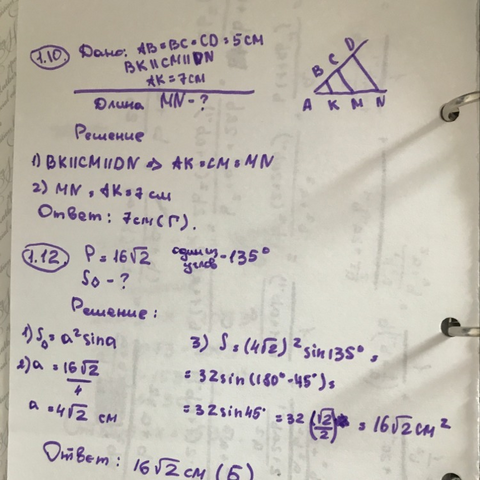 1.10 Дано: AB=BC=CD=5см
BK||CM||DN
AK=7см
Длина MN-?
D
C
B
A K M N
Решение
1) BK||CM||DN => AK=CM=MN
2) MN=AK=7см
Ответ: 7см(Г).
1.12 P=16√2 один из углов -135°
S◊-?
Решение:
1) S◊=a²sina
2) a=16√2/4
a=4√2 см
3) S=(4√2)²sin135°=
=32sin(180°-45°)=
=32sin45°=32(√2/2)=16√2см²
Ответ: 16√2см (Б)